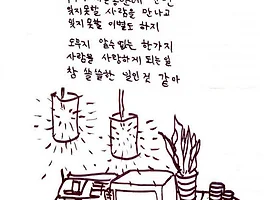 잊지못할 사람을 만나고
잊지못할 이별도 하지
도무지 알수 없는 한가지
사람을 사랑하게 되는일
참 쓸쓸한 일인것 같아